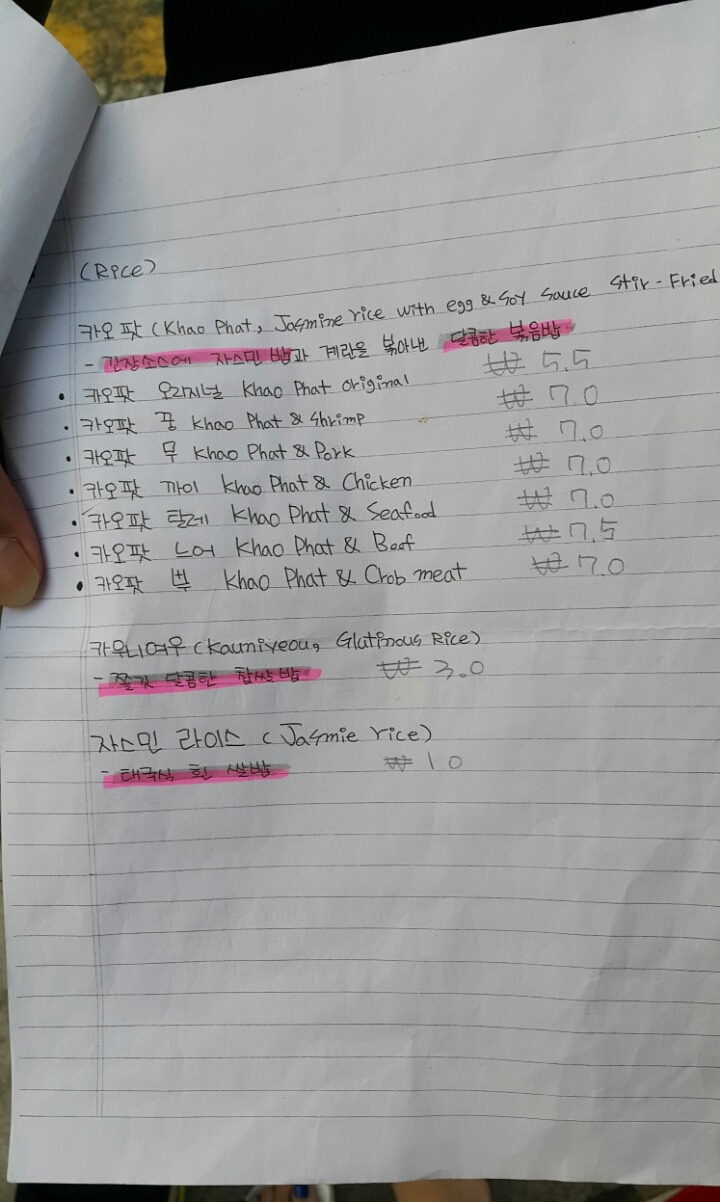 (Rice)
카오팟 (Khao Phat, Jasmine rice with egg & Soy Sauce Stir-Fried
- 간장소스에 자스민 밥과 계란을 볶아낸 달콤한 볶음밥
• 카오팟 오리지널 Khao Phat Original ₩ 5.5
• 카오팟 꿍 Khao Phat & Shrimp ₩ 7.0
• 카오팟 무 Khao Phat & Pork ₩ 7.0
• 카오팟 까이 Khao Phat & Chicken ₩ 7.0
• 카오팟 탈레 Khao Phat & Seafood ₩ 7.0
• 카오팟 느어 Khao Phat & Beef ₩ 7.5
• 카오팟 뿌 Khao Phat & Crob meat ₩ 7.0
카우니여우 (Kauniyeou, Glutinous Rice)
- 쫄깃 달콤한 찹쌀밥 ₩ 3.0
자스민 라이스 (Jasmie rice)
- 태국식 흰 쌀밥 ₩ 1.0